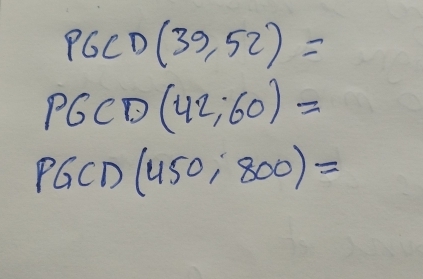 PGCD(39,52) =
PGCD(42;60) =
PGCD(450; 800) =